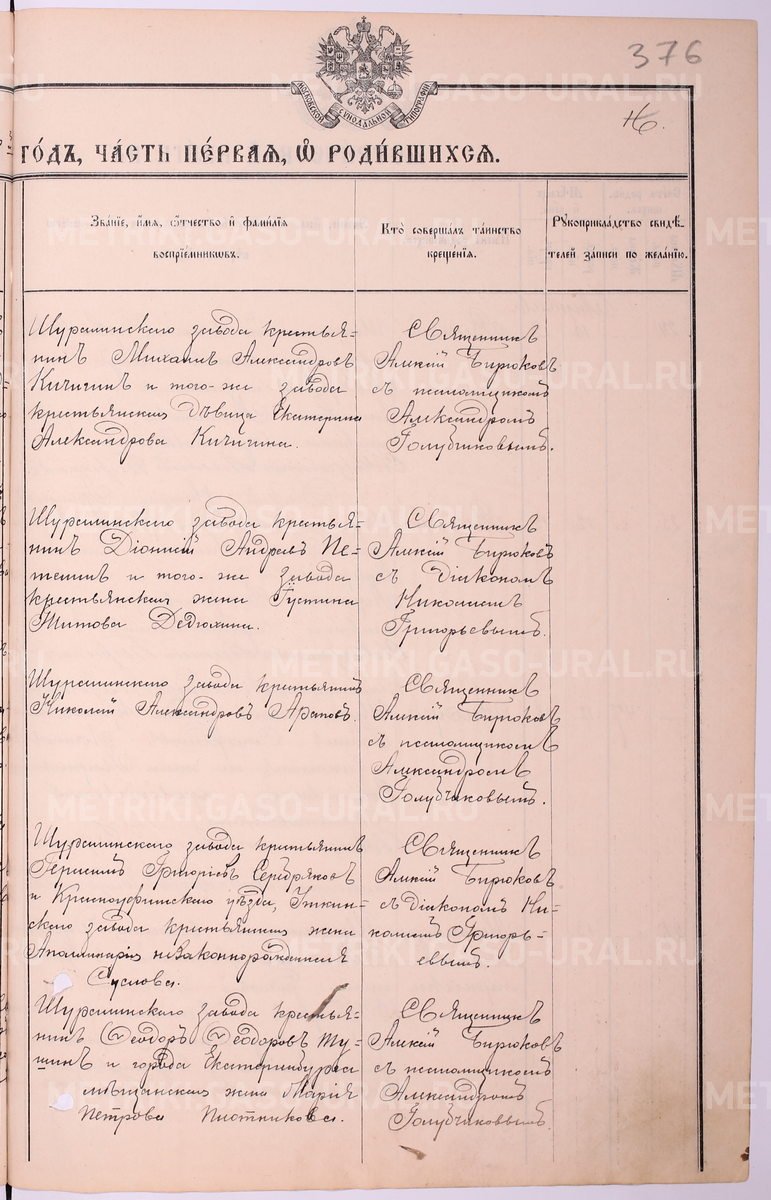 376
МОСКОВСКОЙ СѴНОДАЛЬНОЙ ТИПОГРАФІИ
ГО́ДЪ, ЧА́СТЬ ПЕ́РВАЯ, Ѽ РОДИ́ВШИХСЯ.
Зва́нїе, и҆́мя, ѻ҆́тчество и҆ фами́лїя
воспрїе́мникѡвъ.
Кто̀ соверша́лъ та́инство
креще́нїя.
Рꙋкоприкла́дство свидѣ́-
телей за́писи по жела́нїю.
Шуралинскаго завода крестья=
нинъ Михаилъ Александровъ
Кичигинъ и того-же завода
крестьянская дѣвица Екатерина
Александрова Кичигина.
Священникъ
Алексій Бирюковъ
съ псаломщикомъ
Александромъ
Голубчиковымъ.
Шуралинскаго завода крестья=
нинъ Діонисій Андреевъ Пе=
тешинъ и того-же завода
крестьянская жена Іустина
Титова Дедюхина.
Священникъ
Алексій Бирюковъ
съ Діакономъ
Николаемъ
Григорьевымъ.
Шуралинскаго завода крестьянинъ
Николай Александровъ Араповъ.
Священникъ
Алексій Бирюковъ
съ псаломщикомъ
Александромъ
Голубчиковымъ.
Шуралинскаго завода крестьянинъ
Герасимъ Григоріевъ Серебряковъ
и Красноуфимскаго уѣзда, Уткин=
скаго завода крестьянская жена
Апалинарія незаконнорожденная
Суслова.
Священникъ
Алексій Бирюковъ
съ Діакономъ Ни=
колаемъ Григорь=
евымъ.
Шуралинскаго завода крестья=
нинъ Ѳеодоръ Ѳеодоровъ Ту=
шинъ и города Екатеринбурга
мѣщанская жена Марія
Петрова Плотникова.
Священникъ
Алексій Бирюковъ
съ псаломщикомъ
Александромъ
Голубчиковымъ.
METRIKI.GASO-URAL.RU